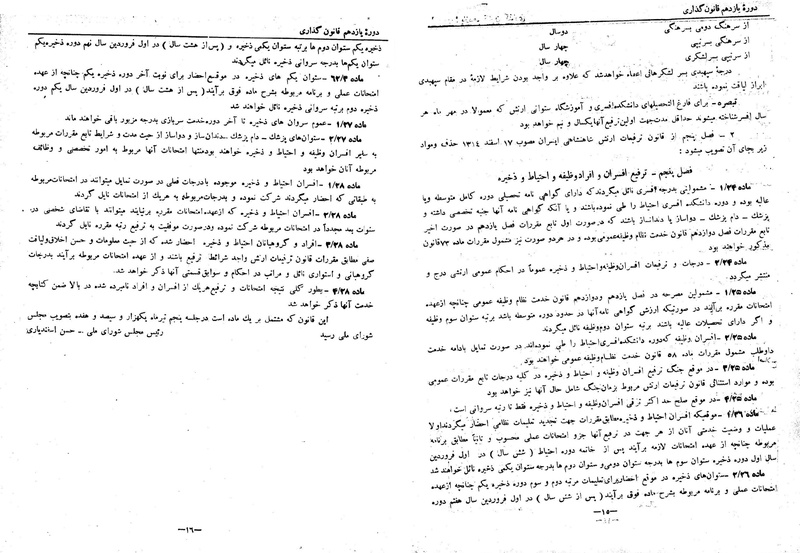 دورهٔ یازدهم قانون‌گذاری
از سرهنگ دومی بسرهنگی دوسال
از سرهنگی بسرتیپی چهار سال
از سرتیپی بسرلشگری چهار سال
درجهٔ سپهبدی بسر لشگرهائی اعطاء خواهدشد که علاوه بر واجد بودن شرایط لازمهٔ در مقام سپهبدی
ابراز لیاقت نموده باشند
تبصره- برای فارغ‌التحصیلهای دانشکده‌افسری و آموزشگاه ستوانی ارتش که معمولا در مهر ماه هر
سال افسرشناخته میشوند حداقل مدت‌جهت اولین‌ترفیع آنهایکسال و نیم خواهد بود
۲ - فصل پنجم از قانون ترفیعات ارتش شاهنشاهی ایسران مصوب ۱۷ اسفند ۱۳۱۴ حذف ومواد
زیر بجای آن تصویب میشود :
فصل پنجم - ترفیع افسران و افرادوظیفه و احتیاط و ذخیره
ماده ۱/۳۴ - مشمولینی بدرجه‌افسری نائل میگردندکه دارای گواهی نامه تحصیلی دوره کامل متوسطه ویا
عالیه بوده و دوره دانشکده افسری احتیاط را طی نموده‌باشند و یا آنکه گواهی نامه آنها جنبه تخصصی داشته و
پزشك - دام پزشك - دواساز یا دندانساز باشند که درصورت اول تابع مقررات فصل یازدهم در صورت اخیر
تابع مقررات فصل دوازدهم قانون خدمت نظام وظیفه‌عمومی‌بوده و در هردو صورت نیز مشمول مقررات ماده ۷۳قانون
مذکور خواهند بود
ماده ۲/۳۴ - درجات و ترفیعات افسران‌وظیفه‌واحتیاط و ذخیره عموماً در احکام عمومی ارتشی درج و
منتشر میگردد
ماده ۱/۳۵ - مشمولین مصرحه در فصل یازدهم ودوازدهم قانون خدمت نظام وظیفه عمومی چنانچه ازعهده
امتحانات مقرره برآیند در صورتیکه ارزش گواهی نامه‌آنها در حدود دوره متوسطه باشد برتبه ستوان سوم وظیفه
و اگر دارای تحصیلات عالیه باشند برتبه ستوان دوم‌وظیفه نائل میگردند
ماده ۲/۳۵ -افسران وظیفه که‌دوره دانشکده‌افسری‌احتیاط را طی نموده‌اند در صورت تمایل بادامه خدمت
داوطلب مشمول مقررات ماده ۵۸ قانون خدمت نظام‌وظیفه عمومی خواهند بود
ماده ۳/۳۵ - در موقع جنگ ترفیع افسران وظیفه و احتیاط و ذخیره در کلیه درجات تابع مقررات عمومی
بوده و موارد استثنائی قانون ترفیعات ارتش مربوط بزمان‌جنگ شامل حال آنها نیز خواهد بود
ماده ۴/۳۵ - در موقع صلح حد اکثر ترقی افسران‌وظیفه و احتیاط و ذخیره فقط تا رتبه سروانی است .
ماده ۱/۳۶ - موقعیکه افسران احتیاط و ذخیره‌مطابق‌مقررات جهت تجدید تعلیمات نظامی احضار میگردنداولا
عملیات و وضعیت خدمتی آنان از هر جهت در ترفیع آنها جزو امتحانات عملی محسوب و ثانیاً مطابق برنامه
مربوطه چنانچه از عهده امتحانات لازمه برآیند پس از خاتمه دوره احتیاط ( شش سال ) در اول فروردین
سال اول دوره ذخیره ستوان سوم ها بدرجه ستوان دومی‌و ستوان دوم ها بدرجه ستوان یکمی ذخیره نائل خواهند شد
ماده ۲/۳۶ -ستوان‌های ذخیره در موقع احضاربرای‌تعلیمات مرتبه دوم و سوم دوره ذخیره یکم چنانچه ازعهده
امتحانات عملی و برنامه مربوطه بشرح ماده فوق برآیند (پس از شش سال) در اول فروردین سال هفتم دوره
-۱۵-
دورهٔ یازدهم قانون گذاری
ذخیره یکم ستوان دوم ها برتبه ستوان یکمی ذخیره و (پس از هشت سال) در اول فروردین سال نهم دوره ذخیره‌یکم
ستوان یکم‌ها بدرجه سروانی ذخیره نائل میگردند
ماده ۶۳/۴ - ستوان یکم های ذخیره در موقع‌احضار برای نوبت آخر دوره ذخیره یکم چنانچه از عهده
امتحانات عملی و برنامه مربوطه بشرح ماده فوق برآیند (پس از هشت سال) در اول فروردین سال یکم دوره
ذخیره دوم برتبه سروانی ذخیره نائل خواهند شد
ماده ۱/۳۷ - عموم سروان های ذخیره تا آخر دوره‌خدمت سربازی بدرجه مزبور باقی خواهند ماند
ماده ۲/۳۷ -ستوان‌های پزشك - دام پزشك -دندان‌ساز و دواساز از حیث مدت و شرایط تابع مقررات مربوطه
به سایر افسران وظیفه و احتیاط و ذخیره خواهند بودمنتها امتحانات آنها مربوط به امور تخصصی و وظائف
مربوطه آنان خواهد بود
ماده ۱/۳۸ -افسران احتیاط و ذخیره موجوده بادرجات فعلی در صورت تمایل میتوانند در امتحانات‌مربوطه
به طبقاتی که احضار میگردند شرکت نموده و بدرجات‌مربوطه به هریك از امتحانات نایل گردند
ماده ۲/۳۸ - افسران احتیاط و ذخیره که ازعهده‌امتحانات مقرره برنیایند میتوانند با تقاضای شخصی در
سنوات بعد مجدداً در امتحانات مربوطه شرکت نموده ودرصورت موفقیت به ترفیع رتبه مقرره نایل گردند
ماده ۳/۳۸ -افراد و گروهبانان احتیاط و ذخیره احضار شده که از حیث معلومات و حسن اخلاق‌ولیاقت
صفی مطابق مقررات قانون ترفیعات ارتش واجد شرائط ترفیع باشند و از عهده امتحانات مربوطه برآیند بدرجات
گروهبانی و استواری نائل و مراتب در احکام و سوابق قسمتی آنها ذکر خواهد شد.
ماده ۴/۳۸ - بطور کلی نتیجه امتحانات و ترفیع‌هریك از افسران و افراد نامبرده شده در بالا ضمن کتابچه
خدمت آنها ذکر خواهد شد
این قانون که مشتمل بر یك ماده است درجلسه پنجم تیرماه یکهزار و سیصد و هفده بتصویب مجلس
شورای ملی رسید رئیس مجلس شورای ملی - حسن اسفندیاری
-۱۶-